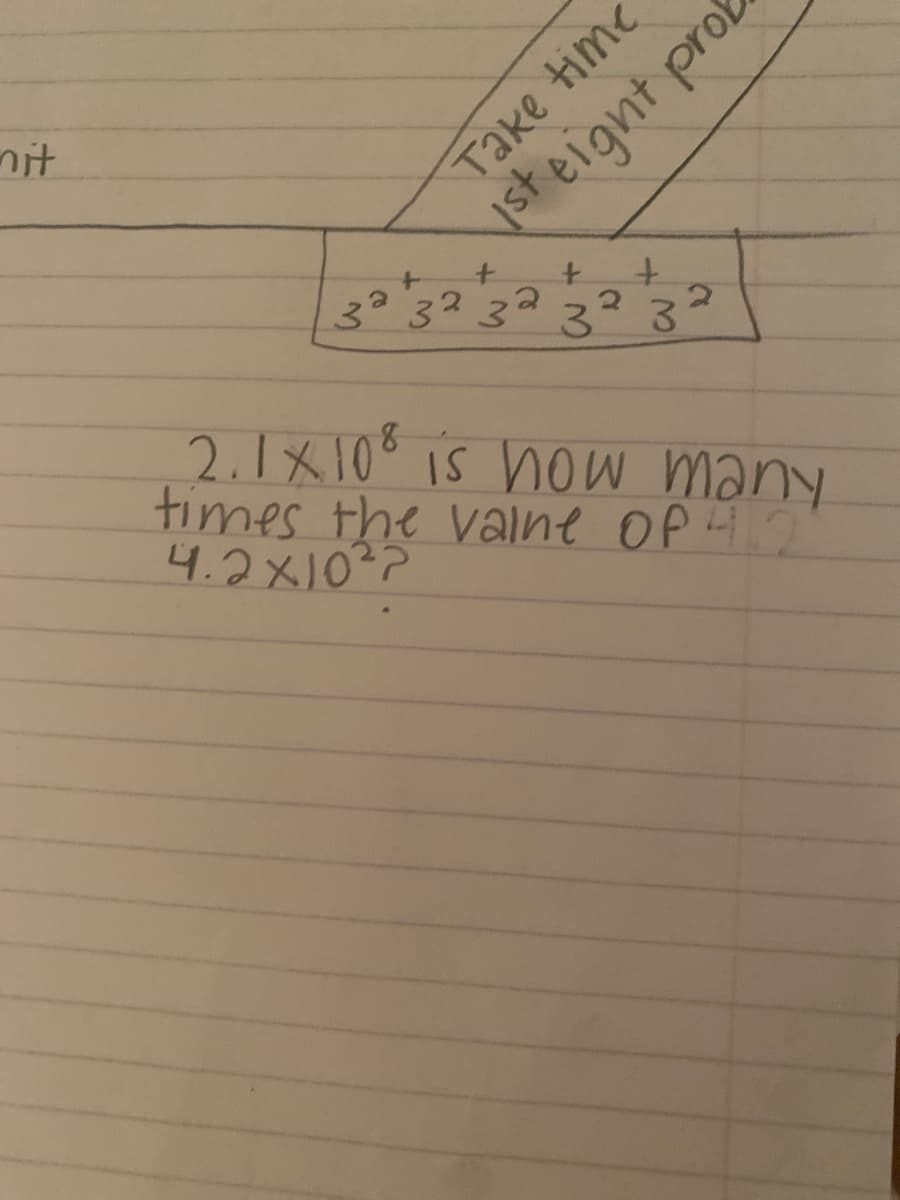 nit
Take time
1st eight prob.
3² + 3² + 3² + 3² + 3²
2.1×10⁸ is how many
times the value of 4.2
4.2×10²?